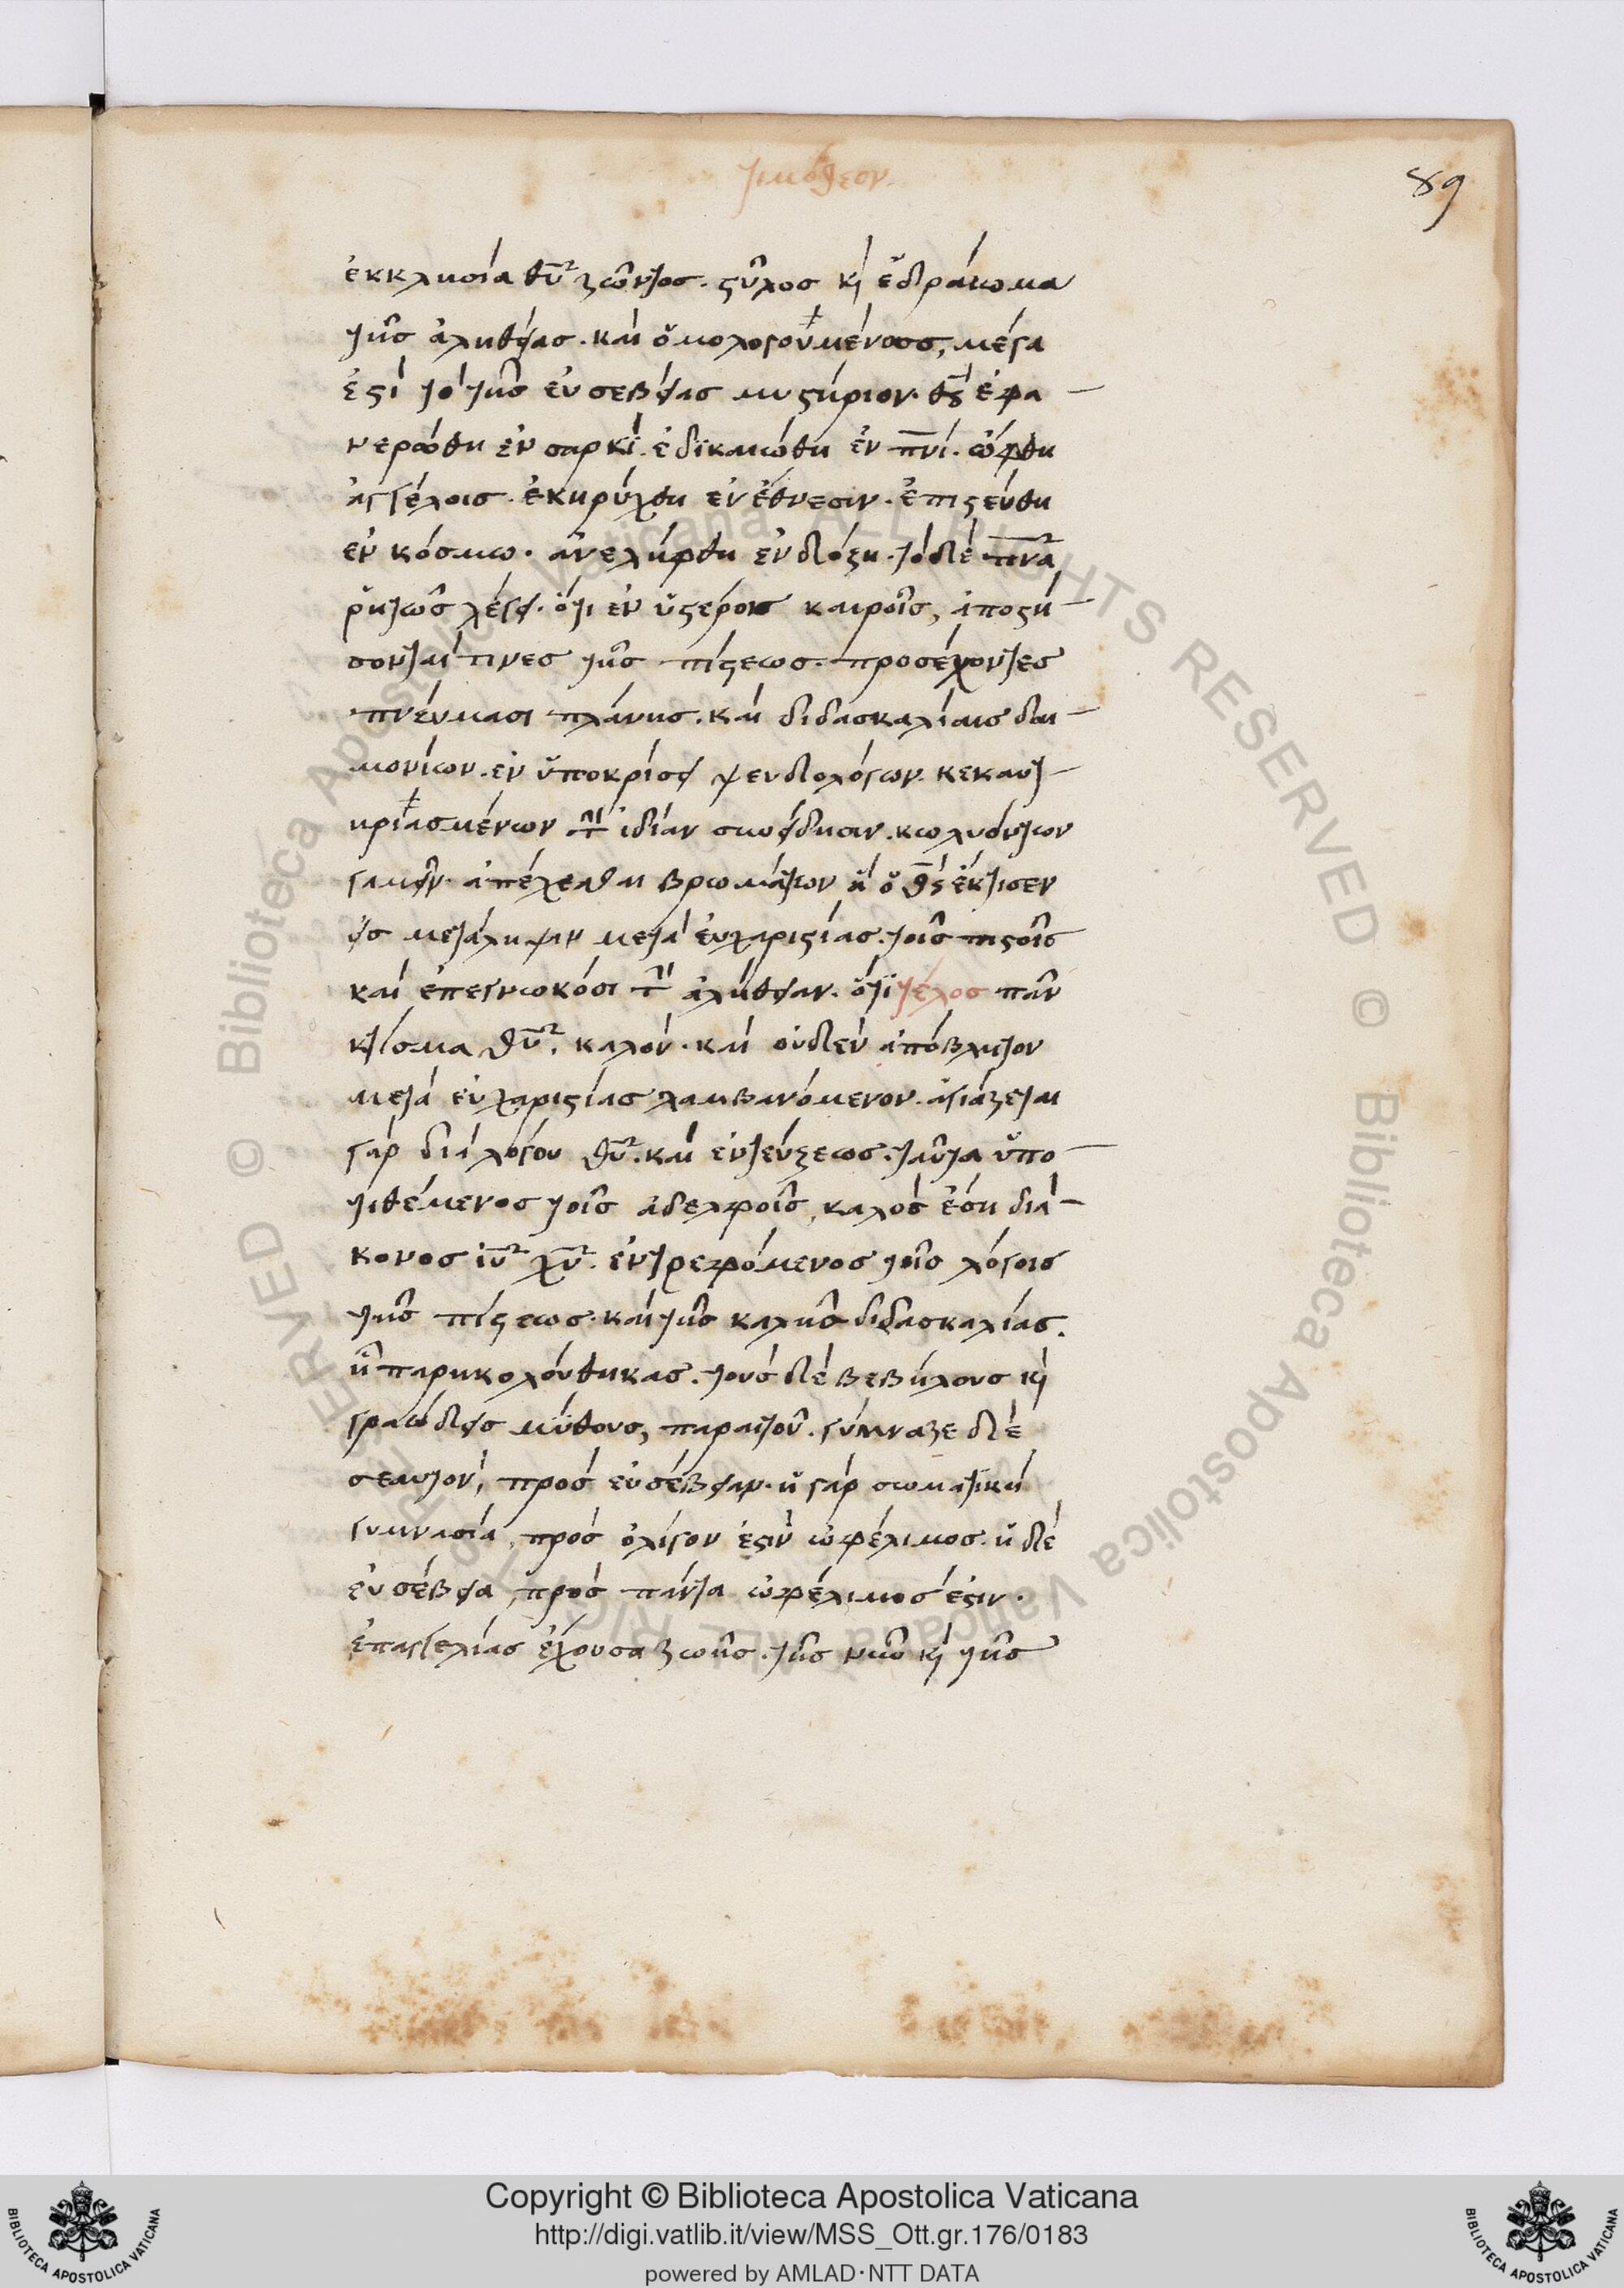 τιμόθεον
89
ἐκκλησία θῦ ζῶντος. στῦλος κὶ ἑδραίωμα
τῆς ἀληθείας. καὶ ὁμολογουμένως, μέγα
ἐστὶ τὸ τῆς εὐσεβείας μυστήριον. θς ἐφα
νερώθη ἐν σαρκί. ἐδικαιώθη ἐν πνι. ὤφθη
ἀγγέλοις. ἐκηρύχθη ἐν ἔθνεσιν. ἐπιστεύθη
ἐν κόσμω. ἀνελήφθη ἐν δόξη. τὸ δὲ πνᾶ
ῥητῶς λέγει. ὅτι ἐν ὑστέροις καιροῖς, ἀποστή
σονταί τινες τῆς πίστεως. προσέχοντες
πνεύμασι πλάνης. καὶ διδασκαλίαις δαι
μονίων. ἐν ὑποκρίσει ψευδολόγων. κεκαυτ
ηριασμένων τὴν ἰδίαν συνείδησιν. κωλυόντων
γαμεῖν. ἀπέχεσθαι βρωμάτων ἃ ὁ θς ἔκτισεν
εἰς μετάληψιν μετὰ εὐχαριστίας. τοῖς πιστοῖς
καὶ ἐπεγνωκόσι τὴν ἀλήθειαν. ὅτι τέλος πᾶν
κτίσμα θῦ, καλόν. καὶ οὐδὲν ἀπόβλητον
μετὰ εὐχαριστίας λαμβανόμενον. ἁγιάζεται
γὰρ διὰ λόγου θῦ. καὶ ἐντεύξεως. ταῦτα ὑπο
τιθέμενος τοῖς ἀδελφοῖς, καλὸς ἔση διά
κονος ἰῦ χῦ. ἐντρεφόμενος τοῖς λόγοις
τῆς πίστεως. καὶ τῆς καλῆς διδασκαλίας.
ἧ παρηκολούθηκας. τοὺς δὲ βεβήλους κὶ
γραώδεις μύθους, παραιτοῦ. γύμναζε δὲ
σεαυτόν, πρὸς εὐσέβειαν. ἡ γὰρ σωματικὴ
γυμνασία, πρὸς ὀλίγον ἐστὶν ὠφέλιμος. ἡ δὲ
εὐσέβεια, πρὸς πάντα ὠφέλιμός ἐστιν.
ἐπαγγελίας ἔχουσα ζωῆς. τῆς νῦν κὶ τῆς
Copyright © Biblioteca Apostolica Vaticana
http://digi.vatlib.it/view/MSS_Ott.gr.176/0183
powered by AMLAD·NTT DATA
BIBLIOTECA APOSTOLICA VATICANA
BIBLIOTECA APOSTOLICA VATICANA
© Biblioteca Apostolica Vaticana ALL RIGHTS RESERVED © Biblioteca Apostolica Vaticana ALL RIGHTS RESERVED